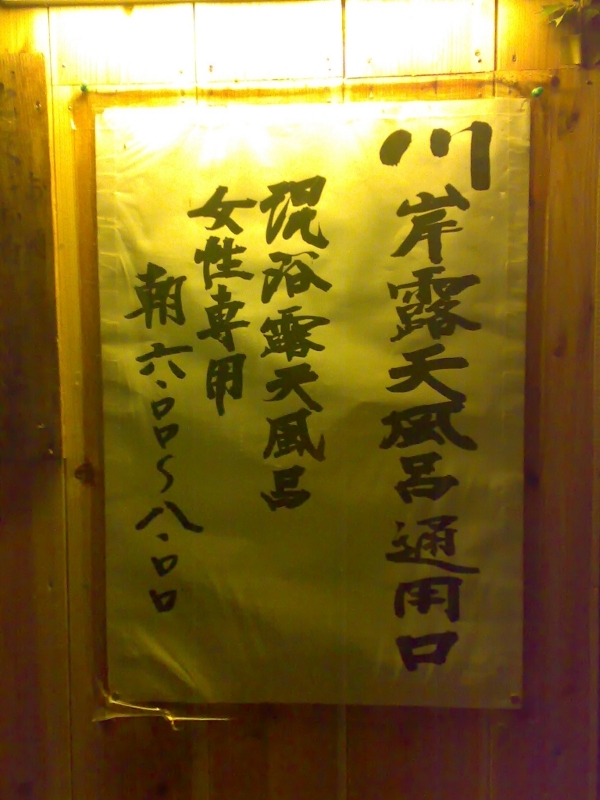 川岸露天風呂通用口
混浴露天風呂
女性専用
朝六・〇〇〜八・〇〇